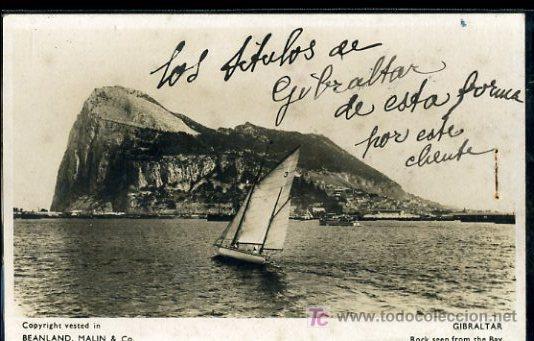 los títulos de
Gibraltar
de esta forma
por este
cliente
3
TC www.todocoleccion.net
Copyright vested in
BEANLAND, MALIN & Co.
GIBRALTAR
Rock seen from the Bay